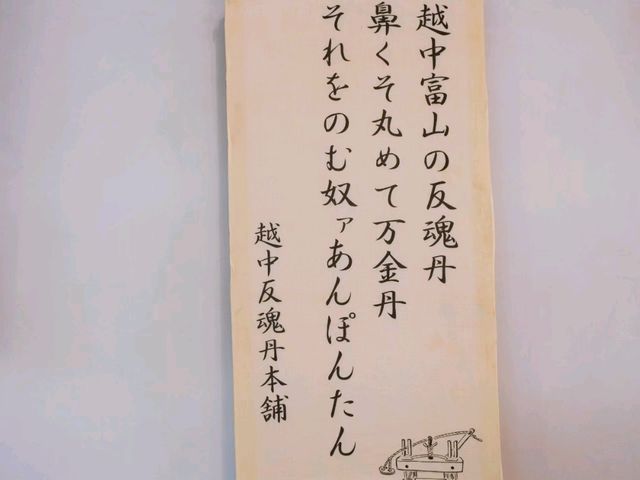 越中富山の反魂丹
鼻くそ丸めて万金丹
それをのむ奴ァあんぽんたん
越中反魂丹本舗